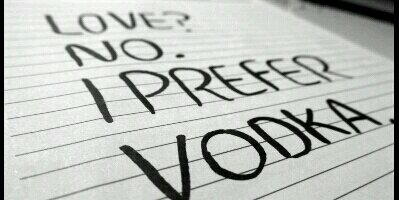 LOVE?
NO.
I PREFER
VODKA.